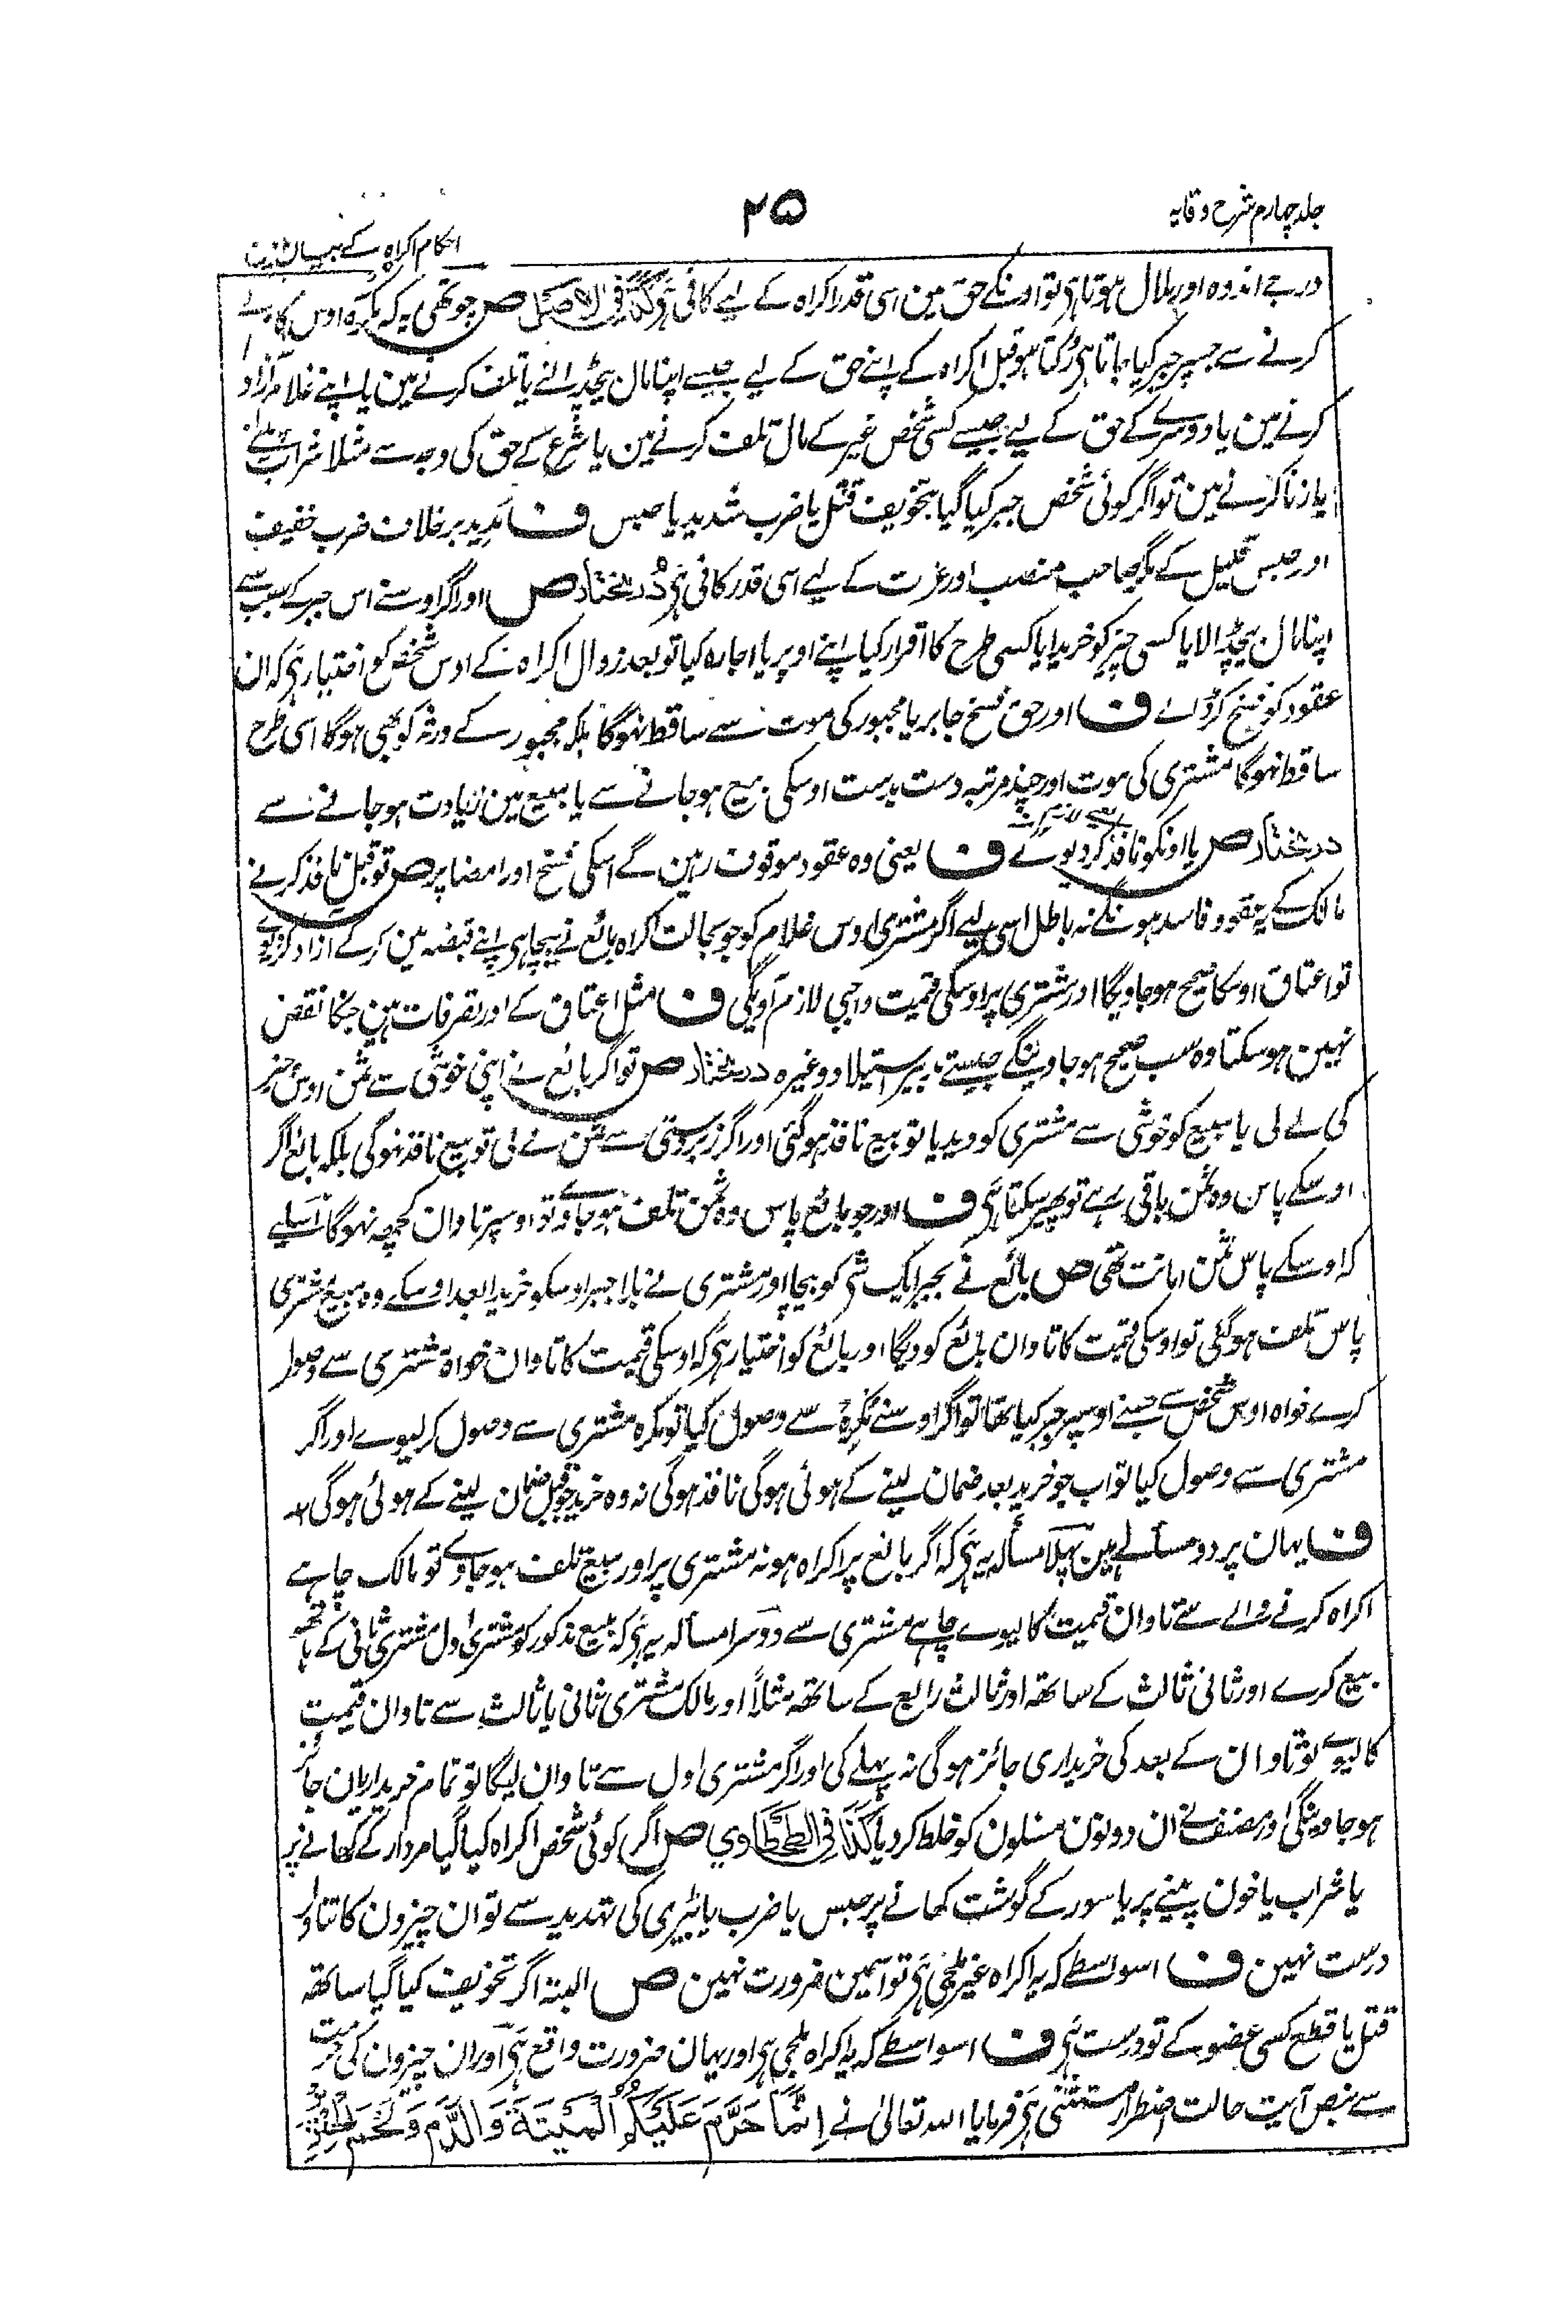 جلد چہارم شرح وقایہ
۲۵
احکام اکراہ کے بیان میں
درجے اندوہ اور ملال ہوتا ہی تو اونکے حق مین اسی قدر اکراہ کے لیے کافی ہی کذا فی الاصل ص چوتھی یہ کہ مکرَہ اوس کام کے
کرنے سے جسپر جبر کیا جاتا ہی رُکتا ہو قبل اکراہ کے اپنے حق کے لیے جیسے اپنا مال بیچڈالنے یا تلف کرنے مین یا اپنے غلام آزاد
کرنے مین یا دوسرے کے حق کے لیے جیسے کسی شخص غیر کے مال تلف کرنے مین یا شرع کے حق کی وجہ سے مثلا شراب پینے
یا زنا کرنے مین تو اگر کوئی شخص جبر کیا گیا بتخویف قتل یا ضرب شدید یا حبس ف مدید برخلاف ضرب خفیف
اور حبس قلیل کے مگر صاحب منصب اور عزت کے لیے اسی قدر کافی ہی دُر مختار ص اور اگر اوسنے اس جبر کے سبب سے
اپنا مال بیچڈالا یا کسی چیز کو خریدا یا کسی طرح کا اقرار کیا اپنے اوپر یا اجارہ کیا تو بعد زوال اکراہ کے اوس شخص کو اختیار ہی کہ ان
عقود کو فسخ کر ڈالے ف اور حق فسخ جابر یا مجبور کی موت سے ساقط نہوگا بلکہ مجبور کے ورثہ کو بھی ہوگا اسی طرح
ساقط نہوگا مشتری کی موت اور چند مرتبہ دست بدست اوسکی بیع ہو جانے سے یا مبیع مین زیادت ہو جانے سے
در مختار ص یا اونکو نافذ کر دیوے ف یعنی وہ عقود موقوف رہین گے اسکی فسخ اور امضا پر ص تو قبل نافذ کرنے
مالک کے یہ عقود فاسد ہونگے نہ باطل اسی لیے اگر مشتری اوس غلام کو جو بحالت اکراہ بائع نے بیچا ہی اپنے قبضہ مین کرکے آزاد کر دیوے
تو اعتاق اوسکا صحیح ہو جاویگا اور مشتری پر اوسکی قیمت واجبی لازم آویگی ف مثل اعتاق کے اور تصرفات ہین جنکا نقض
نہین ہو سکتا وہ سب صحیح ہو جاوینگے جیسے تدبیر استیلاد وغیرہ در مختار ص تو اگر بائع نے اپنی خوشی سے ثمن اوس چیز
کی لے لی یا مبیع کو خوشی سے مشتری کو دیدیا تو بیع نافذ ہو گئی اور اگر زبردستی سے ثمن لے لی تو بیع نافذ نہوگی بلکہ بائع اگر
اوسکے پاس وہ ثمن باقی رہے تو پھیر سکتا ہی ف اور جو بائع پاس وہ ثمن تلف ہو جاوے تو اوسپر تاوان کچھ نہوگا اسلیے
کہ اوسکے پاس ثمن امانت تھی ص بائع نے بجبر ایک شی کو بیچا اور مشتری نے بلا جبر اوسکو خریدا بعد اوسکے وہ مبیع مشتری
پاس تلف ہو گئی تو اوسکی قیمت کا تاوان بائع کو دیگا اور بائع کو اختیار ہی کہ اوسکی قیمت کا تاوان خواہ مشتری سے وصول
کرے خواہ اوس شخص سے جسنے اوسپر جبر کیا تھا تو اگر اوسنے مُکرِہ سے وصول کیا تو مکرہ مشتری سے وصول کر لیوے اور اگر
مشتری سے وصول کیا تو اب جو خرید بعد ضمان لینے کے ہوئی ہوگی نافذ ہوگی نہ وہ خرید جو قبل ضمان لینے کے ہوئی ہوگی
ف یہان پر دو مسألے ہین پہلا مسألہ یہ ہی کہ اگر بائع پر اکراہ ہو نہ مشتری پر اور مبیع تلف ہو جاوے تو مالک چاہے
اکراہ کرنے والے سے تاوان قیمت کا لیوے چاہے مشتری سے دوسرا مسألہ یہ ہی کہ مبیع مذکور کو مشتری اول مشتری ثانی کے ہاتھ
بیع کرے اور ثانی ثالث کے ساتھ اور ثالث رابع کے ساتھ مثلاً اور مالک مشتری ثانی یا ثالث سے تاوان قیمت
کا لیوے تو تاوان کے بعد کی خریداری جائز ہوگی نہ پہلے کی اور اگر مشتری اول سے تاوان لیگا تو تمام خریداریان جائز
ہو جاوینگی اور مصنف نے ان دونون مسئلون کو خلط کر دیا کذا فی الطحطاوی ص اگر کوئی شخص اکراہ کیا گیا مردار کے کھانے پر
یا شراب یا خون پینے پر یا سور کے گوشت کھانے پر حبس یا ضرب یا بیڑی کی تہدید سے تو ان چیزون کا تناول
درست نہین ف اسواسطے کہ یہ اکراہ غیر ملجی ہی تو اسمین ضرورت نہین ص البتہ اگر تخویف کیا گیا ساتھ
قتل یا قطع کسی عضو کے تو درست ہی ف اسواسطے کہ یہ اکراہ ملجی ہی اور یہان ضرورت واقع ہی اور ان چیزون کی حرمت
سے بنص آیت حالت اضطرار مستثنٰی ہی فرمایا اللہ تعالیٰ نے اِنَّمَا حَرَّمَ عَلَیْکُمُ الْمَیْتَةَ وَالدَّمَ وَلَحْمَ الْخِنْزِیْرِ